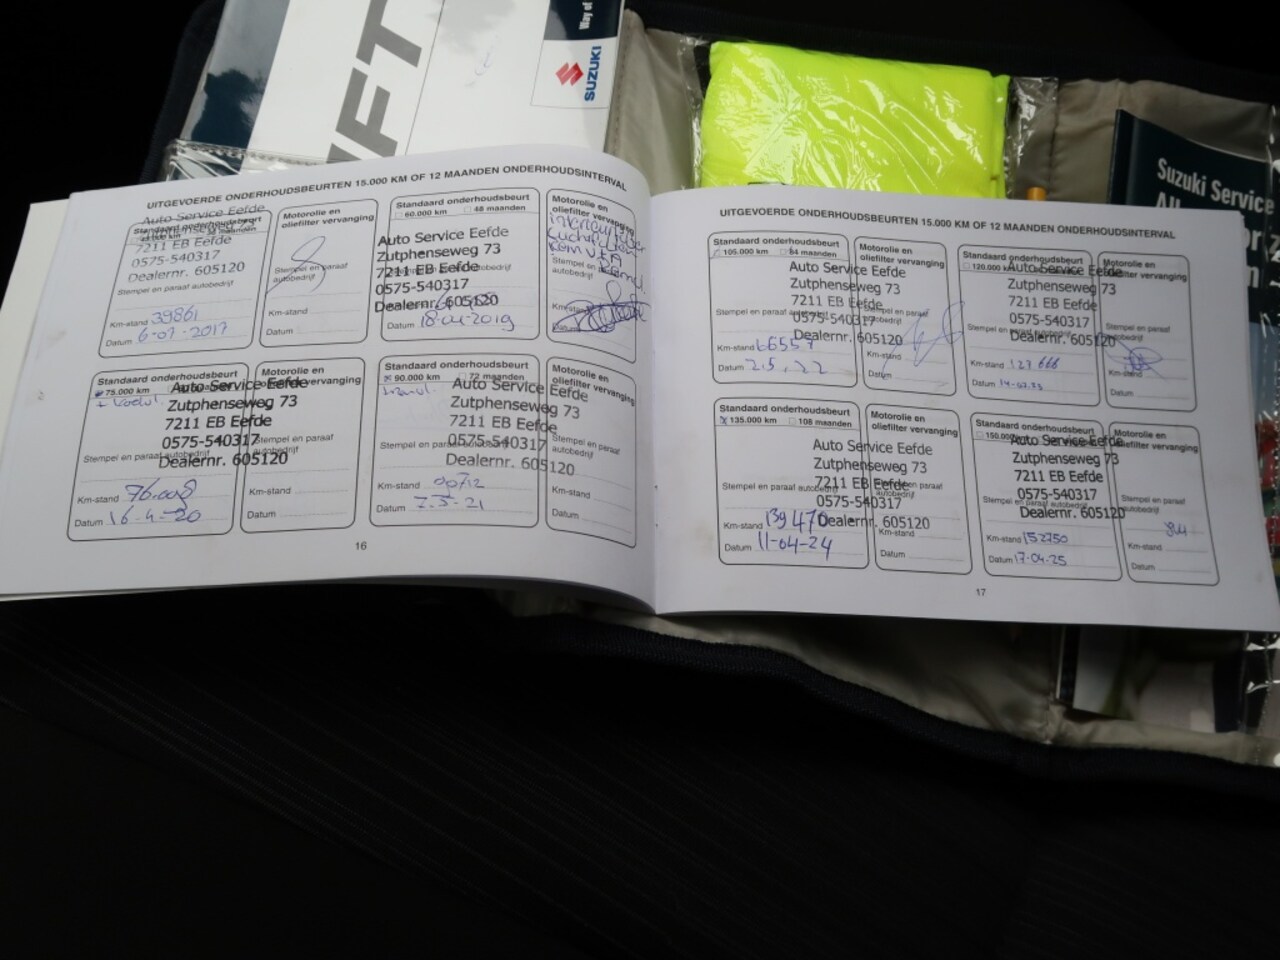 IFT
SUZUKI
Way of
Suzuki Service
UITGEVOERDE ONDERHOUDSBEURTEN 15.000 KM OF 12 MAANDEN ONDERHOUDSINTERVAL
Auto Service Eefde
Standaard onderhoudsbeurt
7211 EB Eefde
0575-540317
Dealernr. 605120
Stempel en paraaf autobedrijf
Km-stand 39861
Datum 6-07-2017
Motorolie en
oliefilter vervanging
Stempel en paraaf
autobedrijf
Km-stand
Datum
Standaard onderhoudsbeurt
60.000 km 48 maanden
Auto Service Eefde
Zutphenseweg 73
7211 EB Eefde
0575-540317
Dealernr. 605120
Datum 18-04-2019
Motorolie en
oliefilter vervanging
Stempel en paraaf
autobedrijf
Km-stand
Datum
Standaard onderhoudsbeurt
75.000 km
Auto Service Eefde
Zutphenseweg 73
7211 EB Eefde
0575-540317
Stempel en paraaf autobedrijf
Dealernr. 605120
Km-stand 76.008
Datum 16-4-20
Motorolie en
oliefilter vervanging
Stempel en paraaf
autobedrijf
Km-stand
Datum
Standaard onderhoudsbeurt
90.000 km 72 maanden
Auto Service Eefde
Zutphenseweg 73
7211 EB Eefde
0575-540317
Stempel en paraaf autobedrijf
Dealernr. 605120
Km-stand
Datum 7-5-21
Motorolie en
oliefilter vervanging
Stempel en paraaf
autobedrijf
Km-stand
Datum
16
UITGEVOERDE ONDERHOUDSBEURTEN 15.000 KM OF 12 MAANDEN ONDERHOUDSINTERVAL
Standaard onderhoudsbeurt
105.000 km 84 maanden
Auto Service Eefde
Zutphenseweg 73
7211 EB Eefde
0575-540317
Stempel en paraaf autobedrijf
Dealernr. 605120
Km-stand
Datum 2.5.22
Motorolie en
oliefilter vervanging
Km-stand
Datum
Standaard onderhoudsbeurt
120.000 km
Auto Service Eefde
Zutphenseweg 73
7211 EB Eefde
0575-540317
Stempel en paraaf autobedrijf
Dealernr. 605120
Km-stand 127 666
Datum
Motorolie en
oliefilter vervanging
Stempel en paraaf
autobedrijf
Km-stand
Datum
Standaard onderhoudsbeurt
135.000 km 108 maanden
Auto Service Eefde
Zutphenseweg 73
7211 EB Eefde
Stempel en paraaf autobedrijf
0575-540317
Dealernr. 605120
Km-stand 139470
Datum 11-04-24
Motorolie en
oliefilter vervanging
Km-stand
Datum
Standaard onderhoudsbeurt
150.000
Auto Service Eefde
Zutphenseweg 73
7211 EB Eefde
0575-540317
Stempel en paraaf autobedrijf
Dealernr. 605120
Km-stand 152750
Datum 17-04-25
Motorolie en
oliefilter vervanging
Stempel en paraaf
autobedrijf
Km-stand
Datum
17